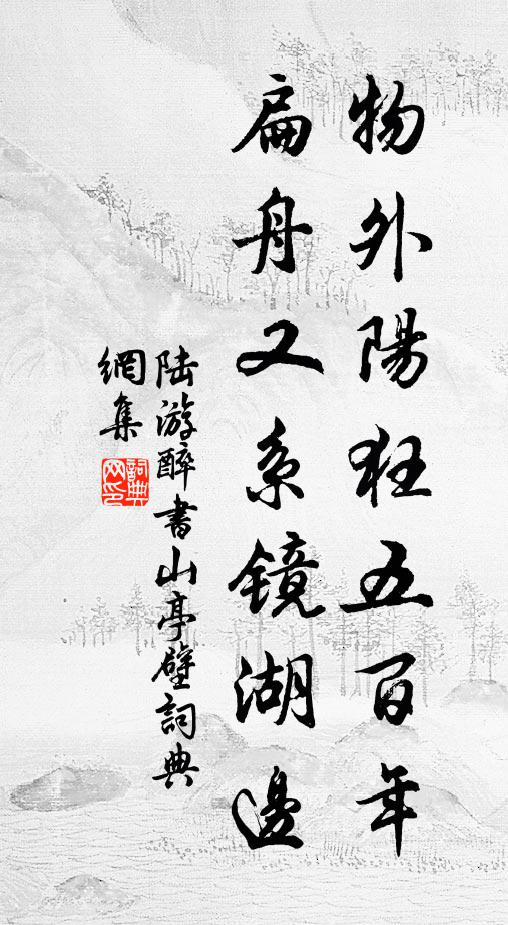 物外陽狂五百年
扁舟又系镜湖邊
陆游醉書山亭壁詞典
網集
詞典
网印